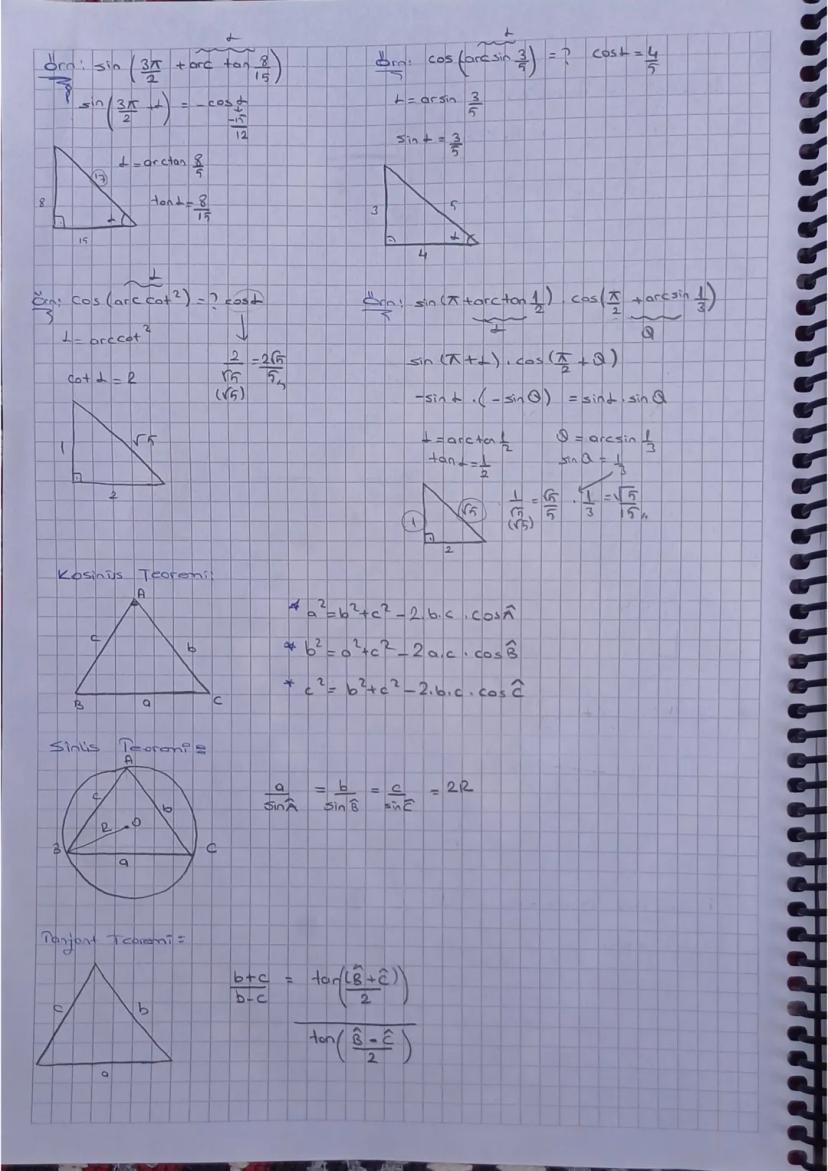 α
Örn: sin (3π/2 + arc tan 8/15)
sin(3π/2 + α) = -cosα
-15/12
α = arctan 8/5
tanα = 8/15
8
17
α
15
α
Örn: cos (arcsin 3/5) = ? cosα = 4/5
α = arsin 3/5
sinα = 3/5
3
5
4
α
α
Örn: cos (arc cot 2) = ? cosα
α = arccot 2
cot α = 2
2/√5 = 2√5/5
(√5)
1
√5
2
Örn: sin(π + arctan 1/2) . cos(π/2 + arcsin 1/3)
α
Q
sin (π + α) . cos(π/2 + Q)
-sinα . (-sinQ) = sinα . sinQ
α = arctan 1/2
tanα = 1/2
Q = arcsin 1/3
sinQ = 1/3
1
√5
2
1/√5 = √5/5 . 1/3 = √5/15
(√5)
Kosinüs Teoremi:
A
c
b
B
a
C
* a² = b² + c² - 2.b.c . cosÂ
* b² = a² + c² - 2a.c . cosB̂
* c² = b² + c² - 2.b.c . cosĈ
Sinüs Teoremi =
A
c
b
R
O
B
a
C
a/sinÂ = b/sinB̂ = c/sinĈ = 2R
Tanjant Teoremi =
c
b
a
b+c/b-c = tan((B̂+Ĉ)/2) / tan((B̂-Ĉ)/2)